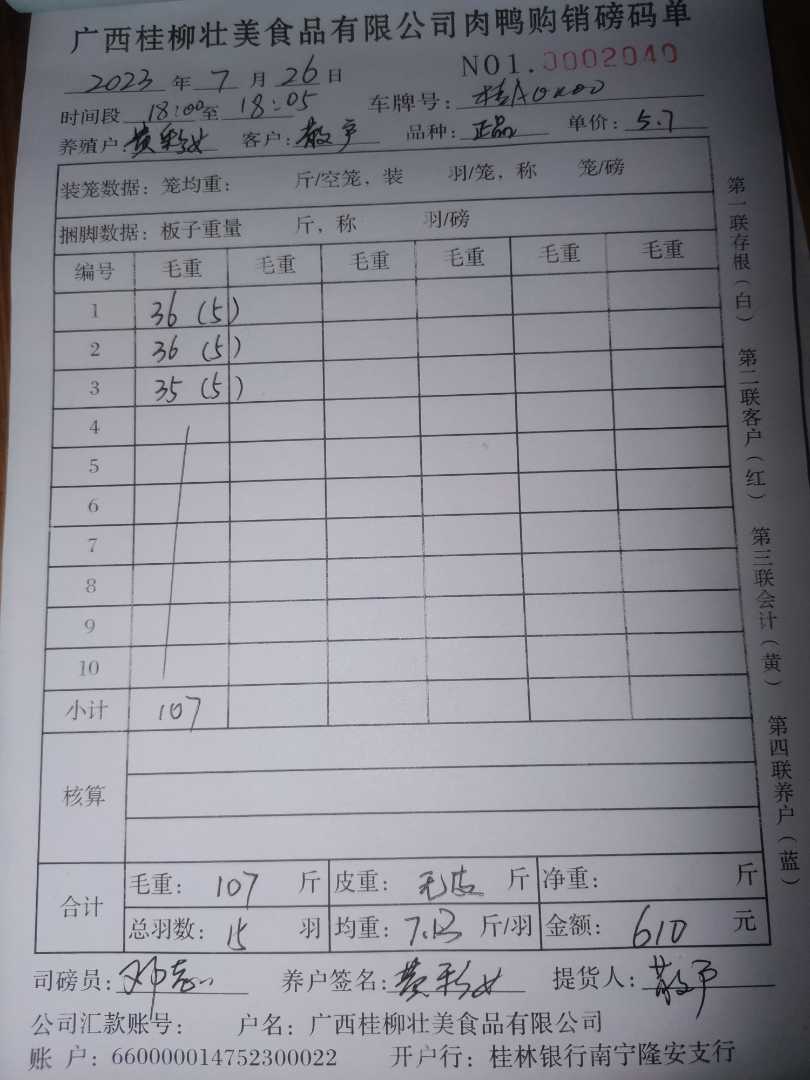 广西桂柳壮美食品有限公司肉鸭购销磅码单
2023年7月26日 NO1.0002040
时间段 18:00至18:05 车牌号:桂A0
养殖户: 黄彩女 客户: 散户 品种: 正品 单价: 5.7
装笼数据: 笼均重: 斤/空笼, 装 羽/笼, 称 笼/磅
捆脚数据: 板子重量 斤, 称 羽/磅
编号 毛重 毛重 毛重 毛重 毛重 毛重
1 36 (5)
2 36 (5)
3 35 (5)
4
5
6
7
8
9
10
小计 107
核算
合计 毛重: 107 斤 皮重: 无皮 斤 净重: 斤
总羽数: 15 羽 均重: 7.13 斤/羽 金额: 610 元
司磅员: 邓 养户签名: 黄彩女 提货人: 散户
公司汇款账号: 户名: 广西桂柳壮美食品有限公司
账 户: 660000014752300022 开户行: 桂林银行南宁隆安支行
第一联存根(白) 第二联客户(红) 第三联会计(黄) 第四联养户(蓝)